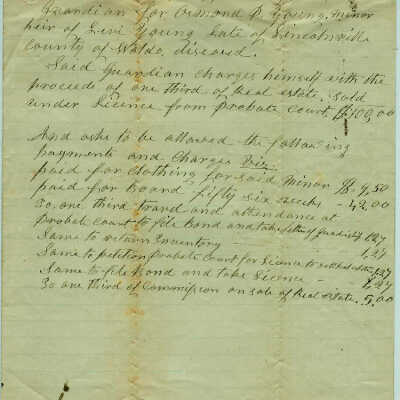 Guardian for Ormond P. Young, minor
heir of Levi Young Late of Lincolnville
County of Waldo, diseased.
Said Guardian Charges himself with the
proceeds of one third of Real estate, Sold
under Licence from Probate Court $100,00
And asks to be allowed the following
payments and Charges Viz
paid for Clothing for said Minor $ 9,50
paid for Board fifty six weeks - 42,00
To one third travel and attendance at
Probate Court to file Bond and take letter of Guardian 1,27
Same to return Inventory 1,27
Same to petition Probate Court for Licence to sell real estate 1,27
Same to file Bond and take Licence - 1,27
To one third of Commission on sale of Real estate. 5,00